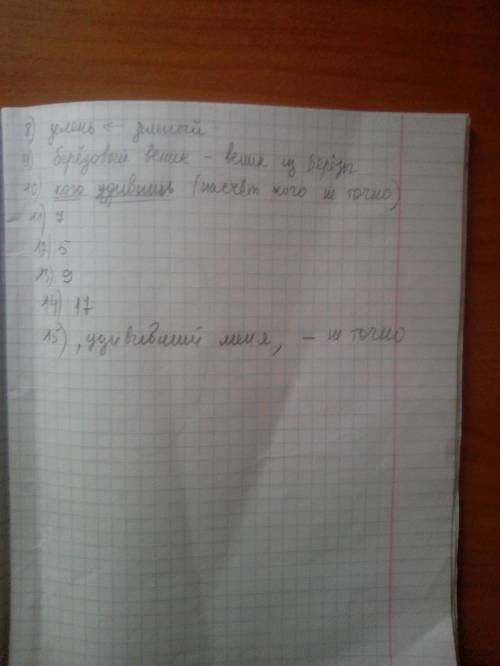 8) зелень ← зеленый
9) берёзовый веник - веник из берёзы
10) кого удивишь (насчет кого не точно)
11) 7
12) 5
13) 9
14) 17
15) , удививший меня, - не точно